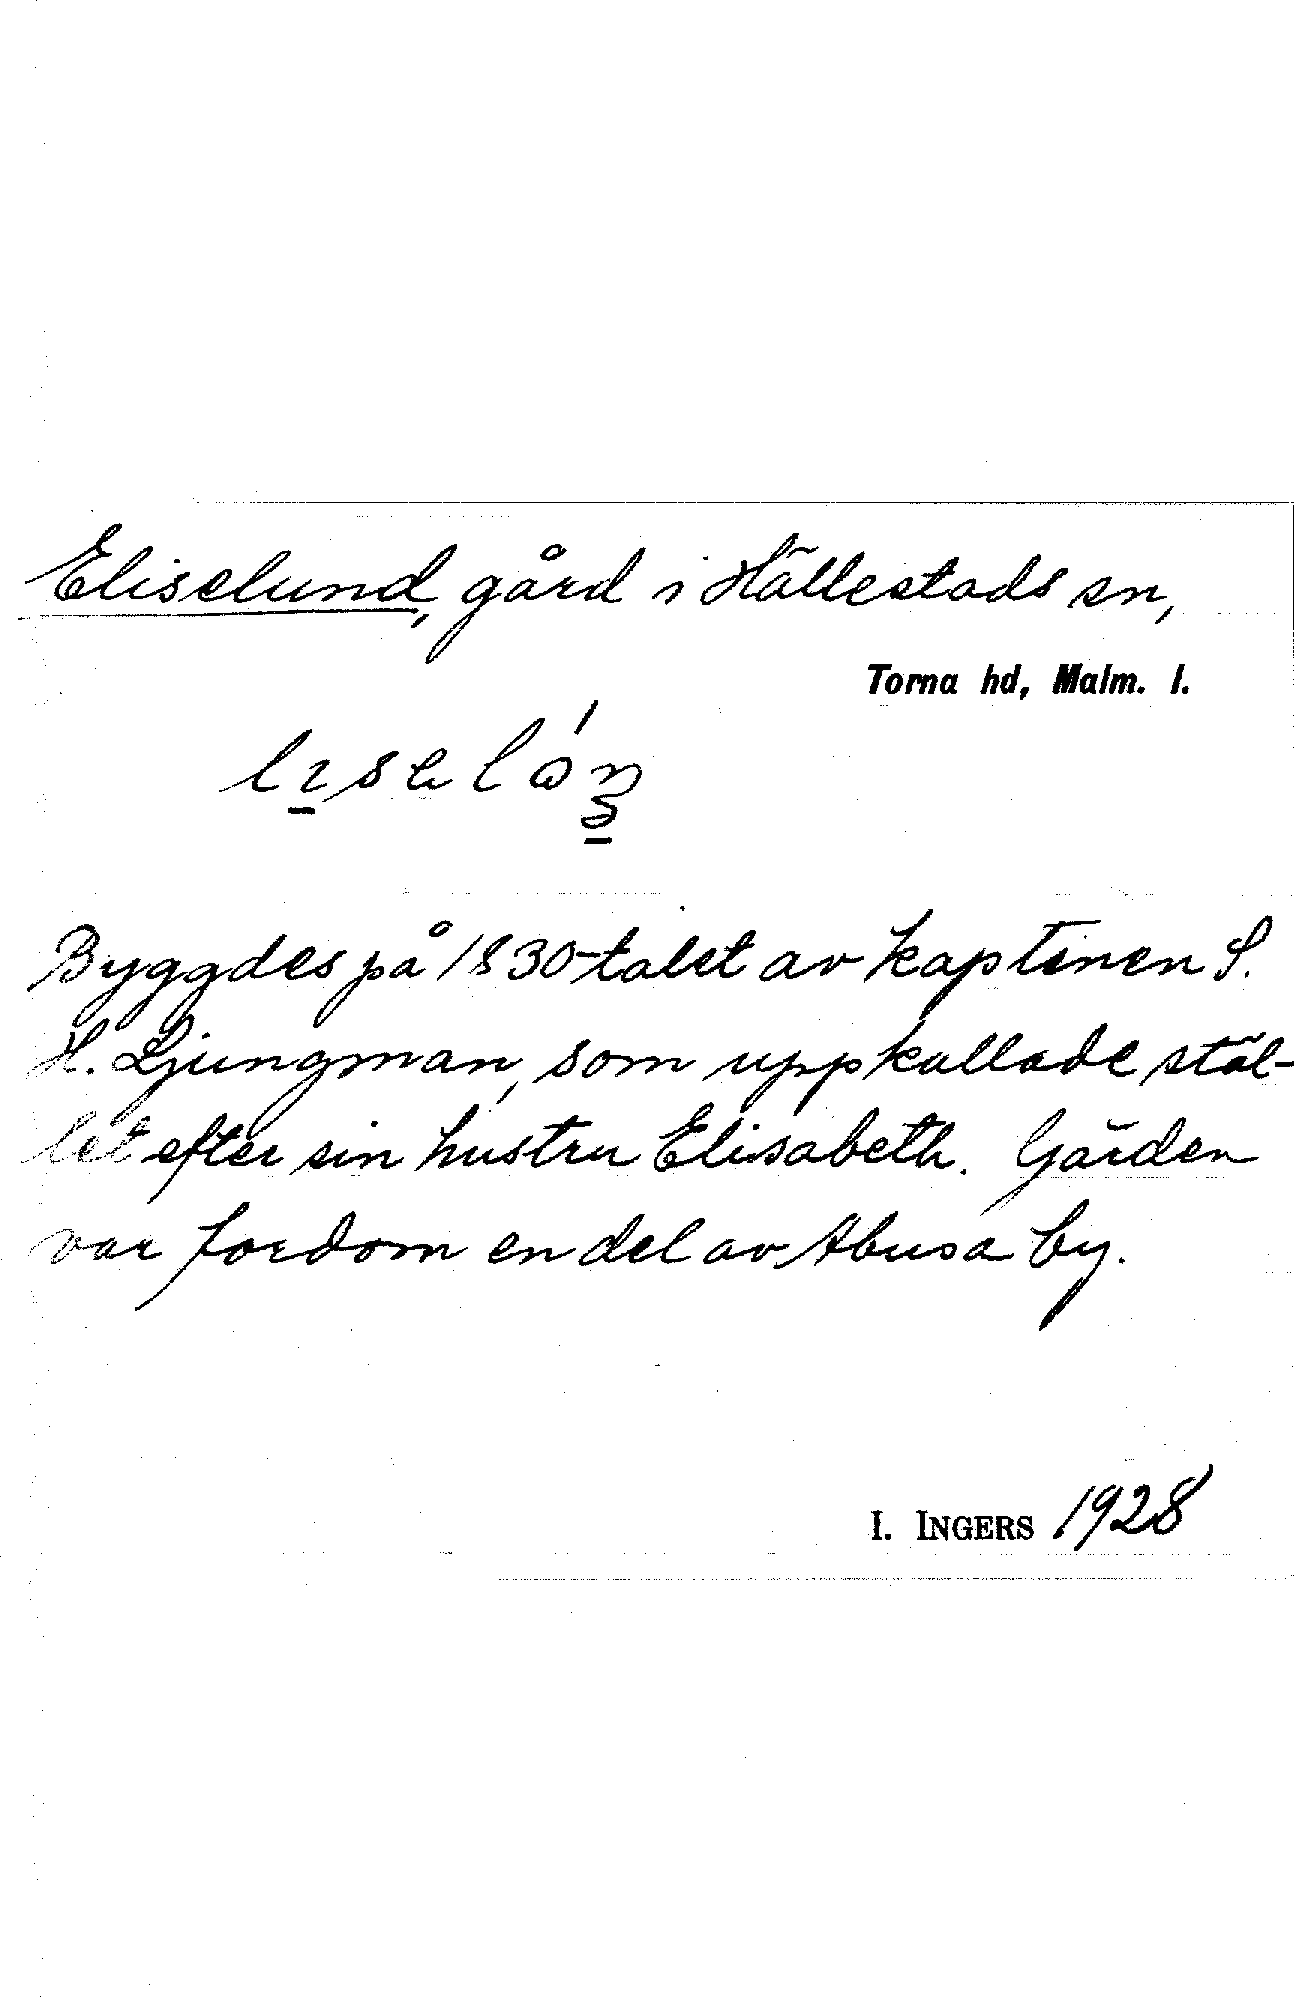 Eliselund, gård i Hällestads sn,
Torna hd, Malm. l.
Byggdes på 1830-talet av kaptenen S.
H. Ljungman, som uppkallade stäl-
let efter sin hustru Elisabeth. Gården
var fordom en del av Abusa by.
I. INGERS 1928